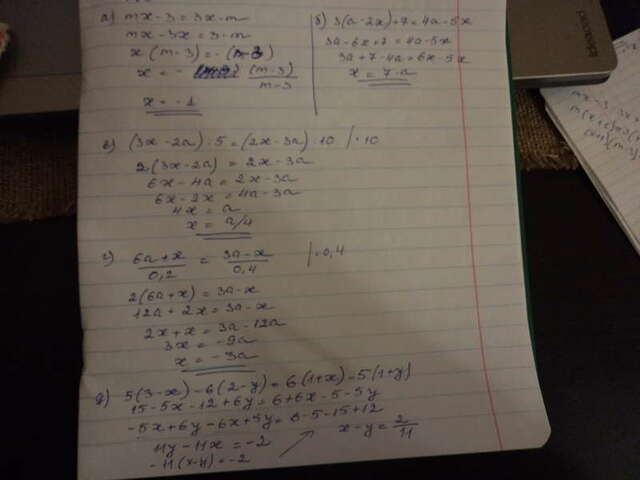 а) mx - 3 = 3x - m
mx - 3x = 3 - m
x(m - 3) = -(m - 3)
x = - (m-3)
m-3
x = -1
б) 3(a - 2x) + 7 = 4a - 5x
3a - 6x + 7 = 4a - 5x
3a + 7 - 4a = 6x - 5x
x = 7 - a
в) (3x - 2a) : 5 = (2x - 3a) : 10 / · 10
2(3x - 2a) = 2x - 3a
6x - 4a = 2x - 3a
6x - 2x = 4a - 3a
4x = a
x = a/4
г) 6a + x = 3a - x / · 0,4
0,2 0,4
2(6a + x) = 3a - x
12a + 2x = 3a - x
2x + x = 3a - 12a
3x = -9a
x = -3a
д) 5(3 - x) - 6(2 - y) = 6(1 + x) - 5(1 + y)
15 - 5x - 12 + 6y = 6 + 6x - 5 - 5y
-5x + 6y - 6x + 5y = 6 - 5 - 15 + 12
11y - 11x = -2
-11(x - y) = -2
x - y = 2
11